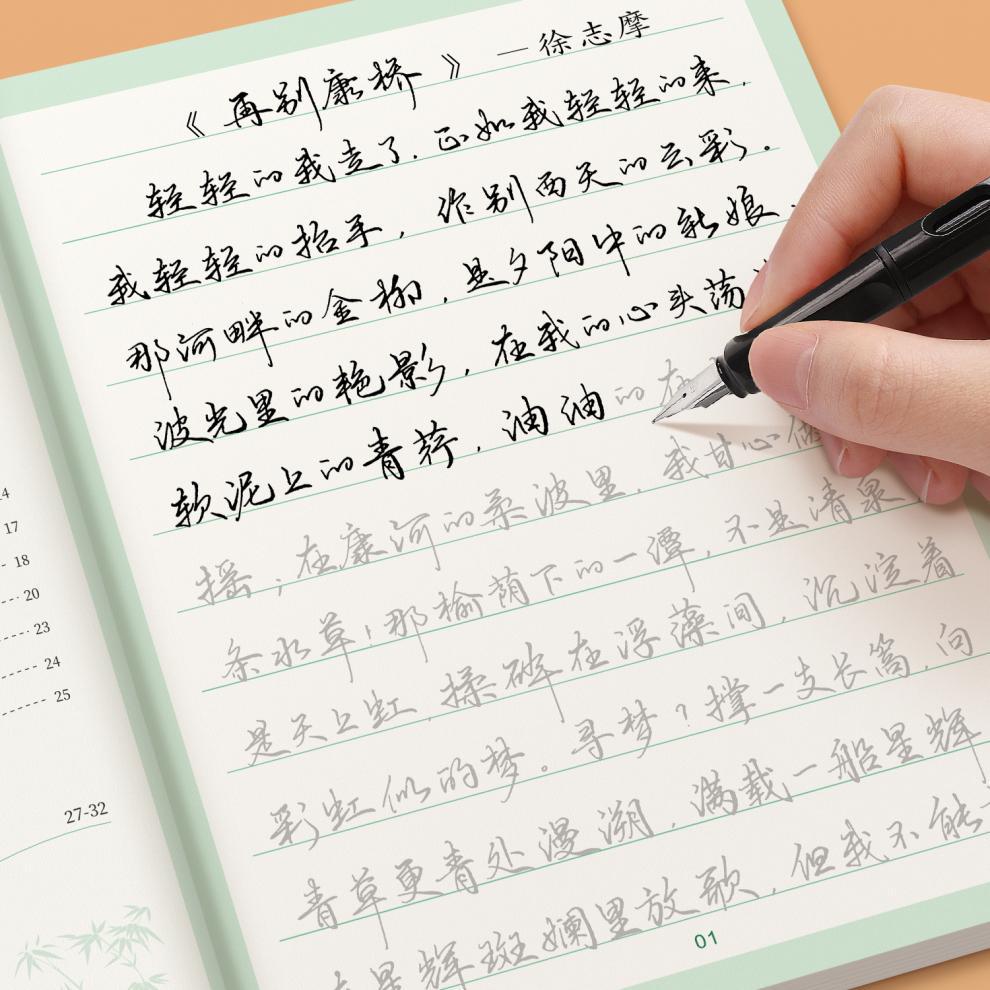 《再别康桥》—徐志摩
轻轻的我走了.正如我轻轻的来.
我轻轻的招手,作别西天的云彩。
那河畔的金柳,是夕阳中的新娘.
波光里的艳影,在我的心头荡
软泥上的青荇,油油的在
摇;在康河的柔波里,我甘心做
条水草!那榆荫下的一潭,不是清泉
是天上虹,揉碎在浮藻间,沉淀着
彩虹似的梦。寻梦?撑一支长篙,向
青草更青处漫溯,满载一船星辉
星辉斑斓里放歌,但我不能
01
17
18
20
23
24
25
27-32